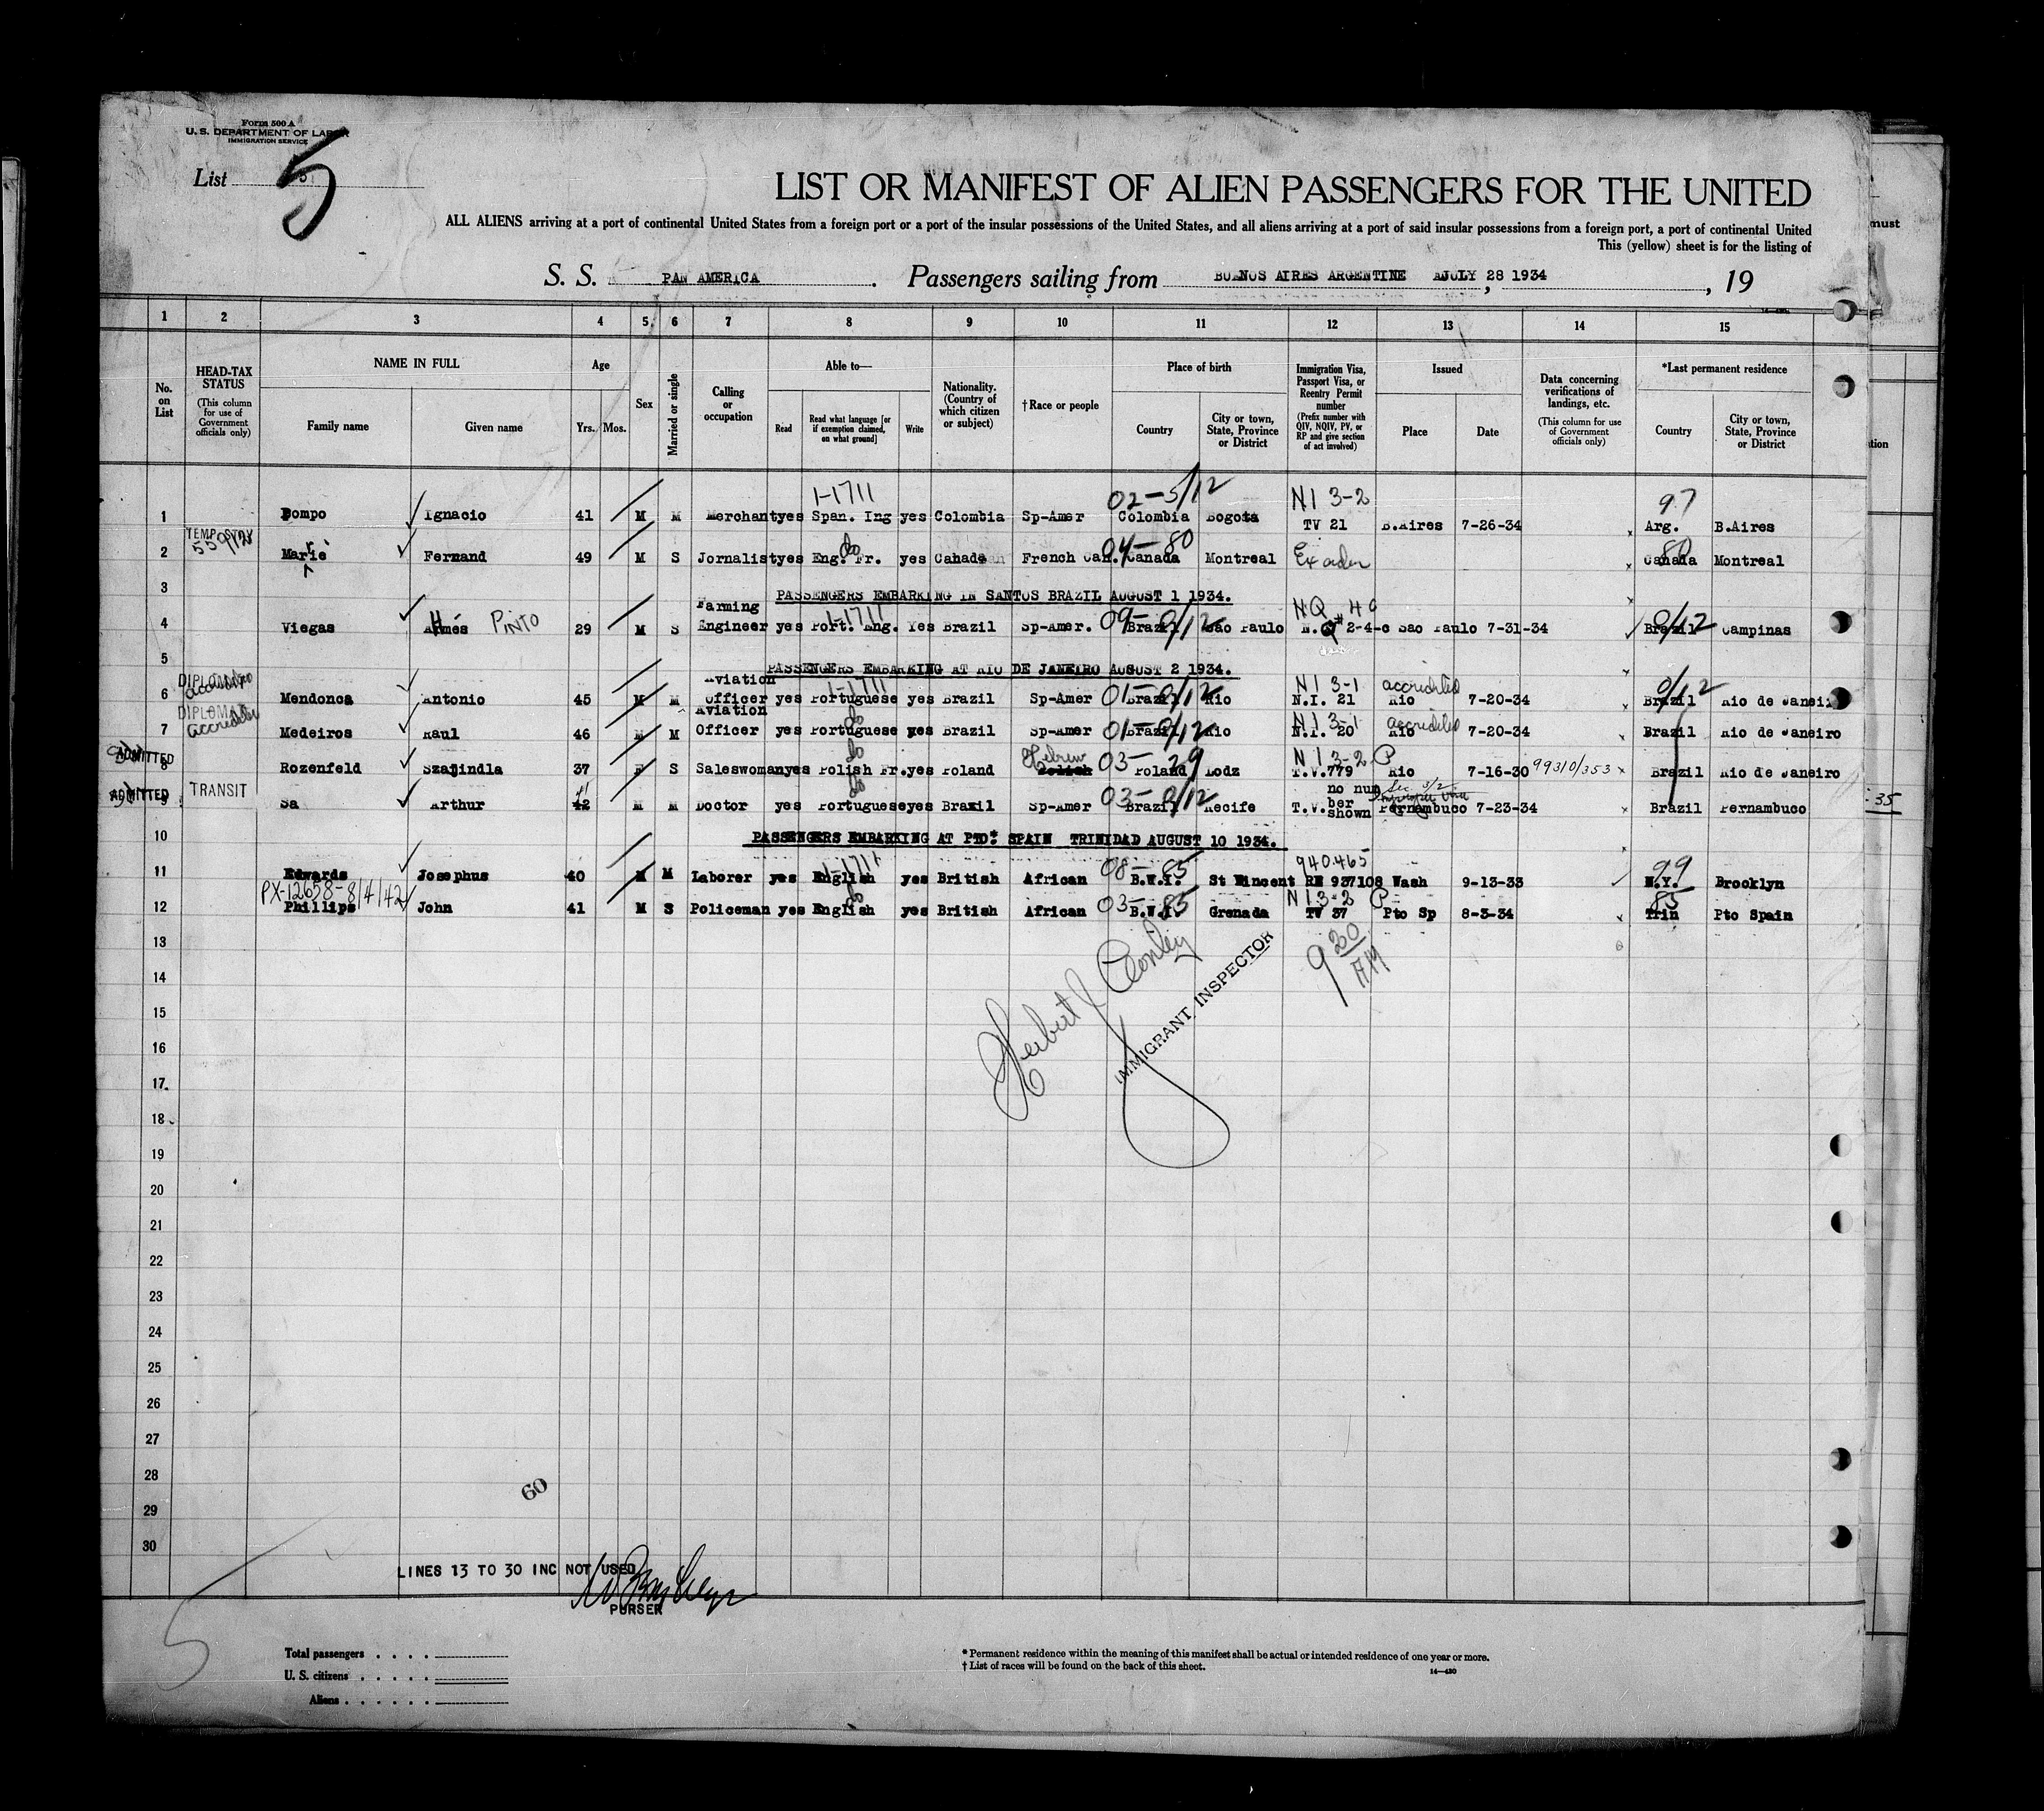 Form 500 A
U. S. DEPARTMENT OF LABOR
IMMIGRATION SERVICE
List 5
5
LIST OR MANIFEST OF ALIEN PASSENGERS FOR THE UNITED
ALL ALIENS arriving at a port of continental United States from a foreign port or a port of the insular possessions of the United States, and all aliens arriving at a port of said insular possessions from a foreign port, a port of continental United
This (yellow) sheet is for the listing of
must
S. S. PAN AMERICA. Passengers sailing from BUENOS AIRES ARGENTINE AJULY 28 1934, , 19
1 2 3 4 5 6 7 8 9 10 11 12 13 14 15
No. on List
HEAD-TAX STATUS (This column for use of Government officials only)
NAME IN FULL
Family name
Given name
Age
Yrs. Mos.
Sex
Married or single
Calling or occupation
Able to—
Read
Read what language [or if exemption claimed, on what ground]
Write
Nationality. (Country of which citizen or subject)
†Race or people
Place of birth
Country
City or town, State, Province or District
Immigration Visa, Passport Visa, or Reentry Permit number (Prefix number with QIV, NQIV, PV, or RP and give section of act involved)
Issued
Place
Date
Data concerning verifications of landings, etc. (This column for use of Government officials only)
*Last permanent residence
Country
City or town, State, Province or District
1-1711 02-5/12 NI 3-2 97
1 Pompo Ignacio 41 M M Merchant yes Span. Ing yes Colombia Sp-Amer Colombia Bogota TV 21 B.Aires 7-26-34 Arg. B.Aires
TEMP. STAY do 04-80 80
2 Marie Fernand 49 M S Jornalist yes Eng. Fr. yes Canadean French Can. Canada Montreal Canada Montreal
3 PASSENGERS EMBARKING IN SANTOS BRAZIL AUGUST 1 1934.
Farming 1-1711 09-0/12 NQ 4c 0/12
4 Viegas Pinto 29 M S Engineer yes Port. Eng. Yes Brazil Sp-Amer. Brazil Sao Paulo N.Q 2-4-c Sao Paulo 7-31-34 Brazil Campinas
5 PASSENGERS EMBARKING AT RIO DE JANEIRO AUGUST 2 1934.
DIPLOMAT accredited Aviation 1-1711 01-0/12 NI 3-1 accredited 0/12
6 Mendonca Antonio 45 M M Officer yes Portuguese yes Brazil Sp-Amer Brazil Rio N.I. 21 Rio 7-20-34 Brazil Rio de Janeiro
DIPLOMAT accredited Aviation do 01-0/12 NI 3-1 accredited
7 Medeiros Raul 46 M M Officer yes Portuguese yes Brazil Sp-Amer Brazil Rio N.I. 20 Rio 7-20-34 Brazil Rio de Janeiro
ADMITTED do Hebrew 03-29 NI 3-2 P
8 Rozenfeld Szajindla 37 F S Saleswoman yes Polish Fr. yes Poland Polish Poland Lodz T.V.779 Rio 7-16-30 99310/353 Brazil Rio de Janeiro
ADMITTED TRANSIT 41 do 03-0/12 no number shown
9 Sa Arthur 42 M M Doctor yes Portuguese yes Brazil Sp-Amer Brazil Recife T.V. Pernambuco 7-23-34 Brazil Pernambuco
35
10 PASSENGERS EMBARKING AT PTO. SPAIN TRINIDAD AUGUST 10 1934.
1-1711 08-85 940465 99
11 Edwards Josephus 40 M M Laborer yes English yes British African B.W.I. St Vincent RE 937108 Wash 9-13-33 N.Y. Brooklyn
PX-12658-8/4/42 do 03-85 NI 3-2 P 85
12 Phillips John 41 M S Policeman yes English yes British African B.W.I. Grenada TV 37 Pto Sp 8-3-34 Trin Pto Spain
13
14
15
16
17
18
19
20
21
22
23
24
25
26
27
28
29
30
Herbert J Conley
IMMIGRANT INSPECTOR
9 20 AM
60
LINES 13 TO 30 INC NOT USED
PURSER
5
Total passengers
U. S. citizens
Aliens
*Permanent residence within the meaning of this manifest shall be actual or intended residence of one year or more.
†List of races will be found on the back of this sheet.
14—430